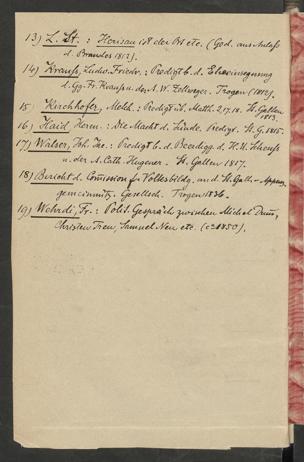 13) L. St.: Herisau ist der Ort etc. (Ged. aus Anlass
d. Brandes 1812).
14) Krauss, Ludw. Friedr.: Predigt b. d. Eheeinsegnung
d. Gg. Fr. Krauss u. der A. W. Zollweger. Trogen (1812).
15) Kirchhofer, Melch.: Predigt üb. Matth. 2,17.18. St. Gallen
1813.
16) Haid, Herm.: Die Macht d. Sünde. Predigt. St. G. 1815.
17) Walser, Joh. Jac.: Predigt b. d. Beerdigg. d. H. U. Scheuss
u. der A. Cath. Hugener. St. Gallen 1817.
18) Bericht d. Commission f. Volksbildg. an d. St. Gall.-Appenz.
gemeinnütz. Gesellsch. Trogen 1836.
19) Wehrdi, Fr.: Polit. Gespräch zwischen Michel
Christen Treu, Samuel Neu etc. (ca 1850).